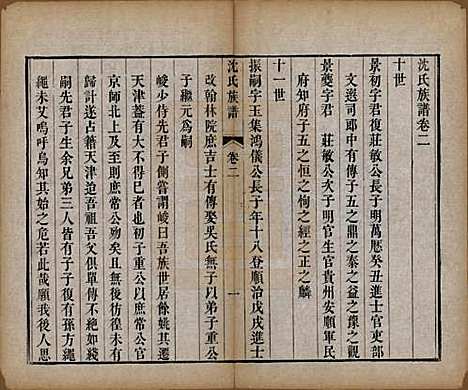 沈氏族譜卷二
十世
景初字君復莊敏公長子明萬厯癸丑進士官吏部
文選司郎中有傳子五之鼎之泰之益之豫之觀
景夔字君　莊敏公次子明官生官貴州安順軍民
府知府子五之恒之恂之經之正之麟
十一世
振嗣字玉集鴻儀公長子年十八登順治戊戌進士
沈氏族譜　卷二　一
改翰林院庶吉士有傳娶吳氏無子以弟子重公
子繼元爲嗣
峻少侍先君子側嘗謂峻曰吾族世居餘姚其于
天津蓋有大德而不享其報者至子重公庶常公官
京師北上則庶常公殁矣且無後徬徨未有
歸計遂占籍天津迨吾祖吾父俱單傳不絶如綫
嗣先君子生余兄弟三人皆有子庶常公復有孫方繩
繩未艾嗚呼烏知其之危若此哉願我後人思